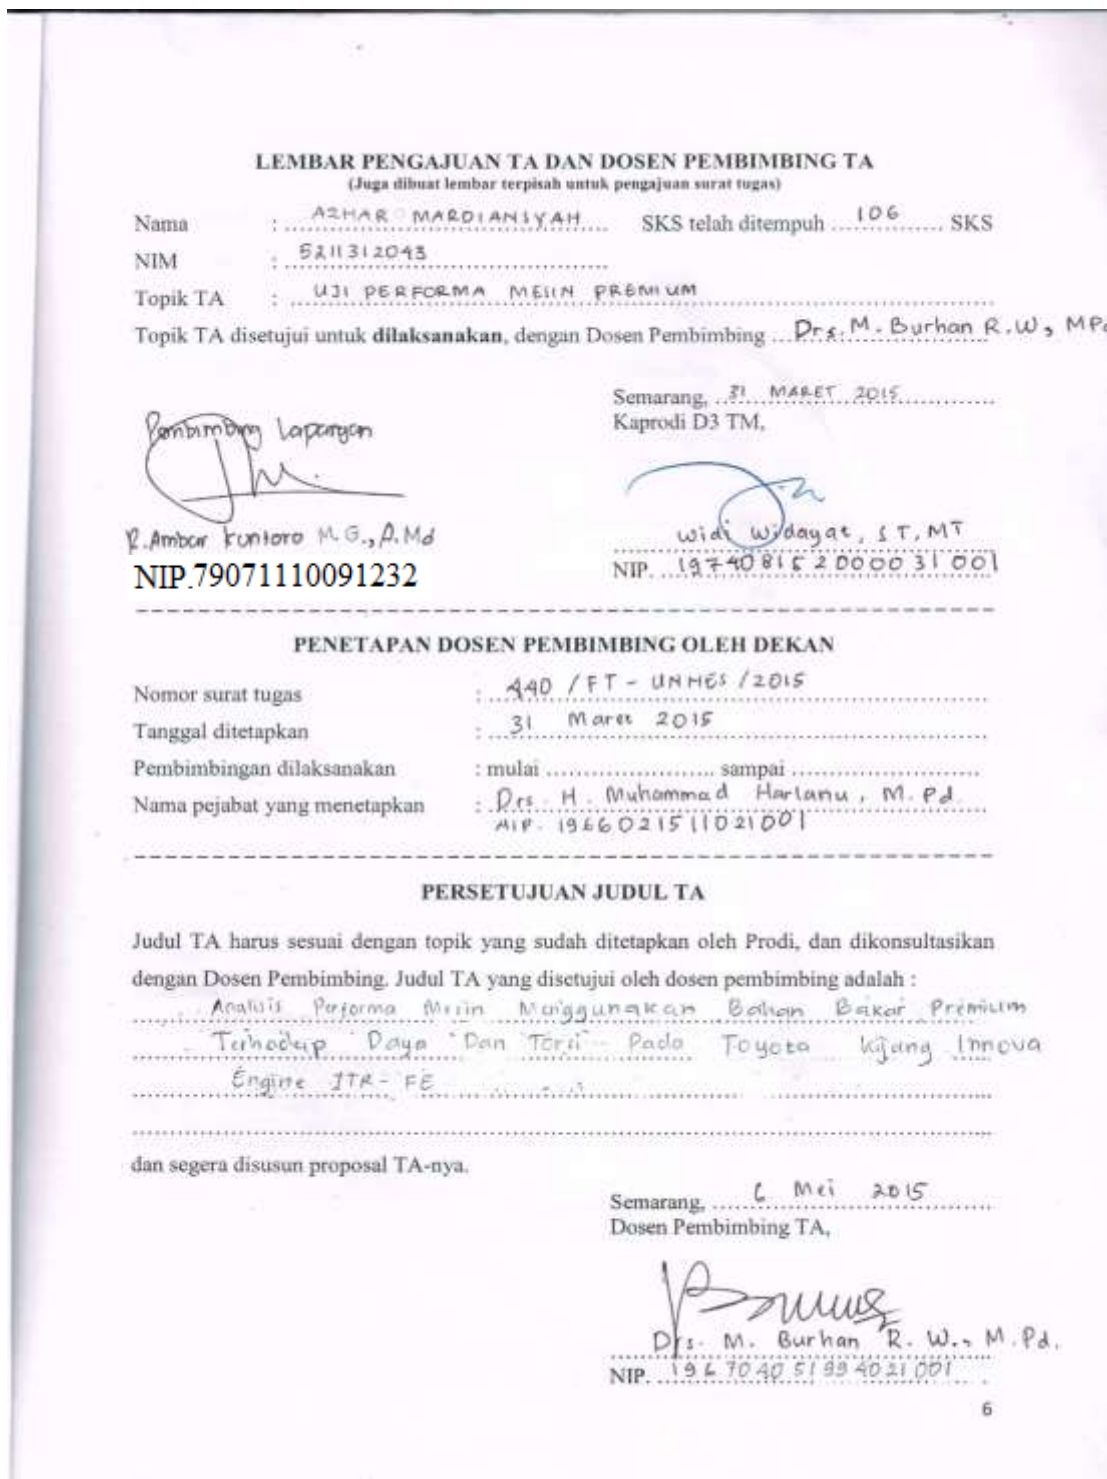 LEMBAR PENGAJUAN TA DAN DOSEN PEMBIMBING TA
(Juga dibuat lembar terpisah untuk pengajuan surat tugas)
Nama : AZHAR MARDIANSYAH SKS telah ditempuh 106 SKS
NIM : 5211312043
Topik TA : UJI PERFORMA MESIN PREMIUM
Topik TA disetujui untuk dilaksanakan, dengan Dosen Pembimbing Drs. M. Burhan R.W, MPd
Semarang, 31 MARET 2015
Kaprodi D3 TM,
Pembimbing Lapangan
R. Ambar Kuntoro M.G., A.Md
Widi Widayat, ST, MT
NIP.79071110091232
NIP. 197408152000031001
PENETAPAN DOSEN PEMBIMBING OLEH DEKAN
Nomor surat tugas : 440 / FT - UNNES / 2015
Tanggal ditetapkan : 31 Maret 2015
Pembimbingan dilaksanakan : mulai ........................ sampai ...........................
Nama pejabat yang menetapkan : Drs. H. Muhammad Harlanu, M.Pd
NIP. 1966021511021001
PERSETUJUAN JUDUL TA
Judul TA harus sesuai dengan topik yang sudah ditetapkan oleh Prodi, dan dikonsultasikan
dengan Dosen Pembimbing. Judul TA yang disetujui oleh dosen pembimbing adalah :
Analisis Performa Mesin Menggunakan Bahan Bakar Premium
Terhadap Daya Dan Torsi Pada Toyota Kijang Innova
Engine 1TR-FE
dan segera disusun proposal TA-nya.
Semarang, 6 Mei 2015
Dosen Pembimbing TA,
Drs. M. Burhan R. W., M.Pd.
NIP. 196704051994021001
6